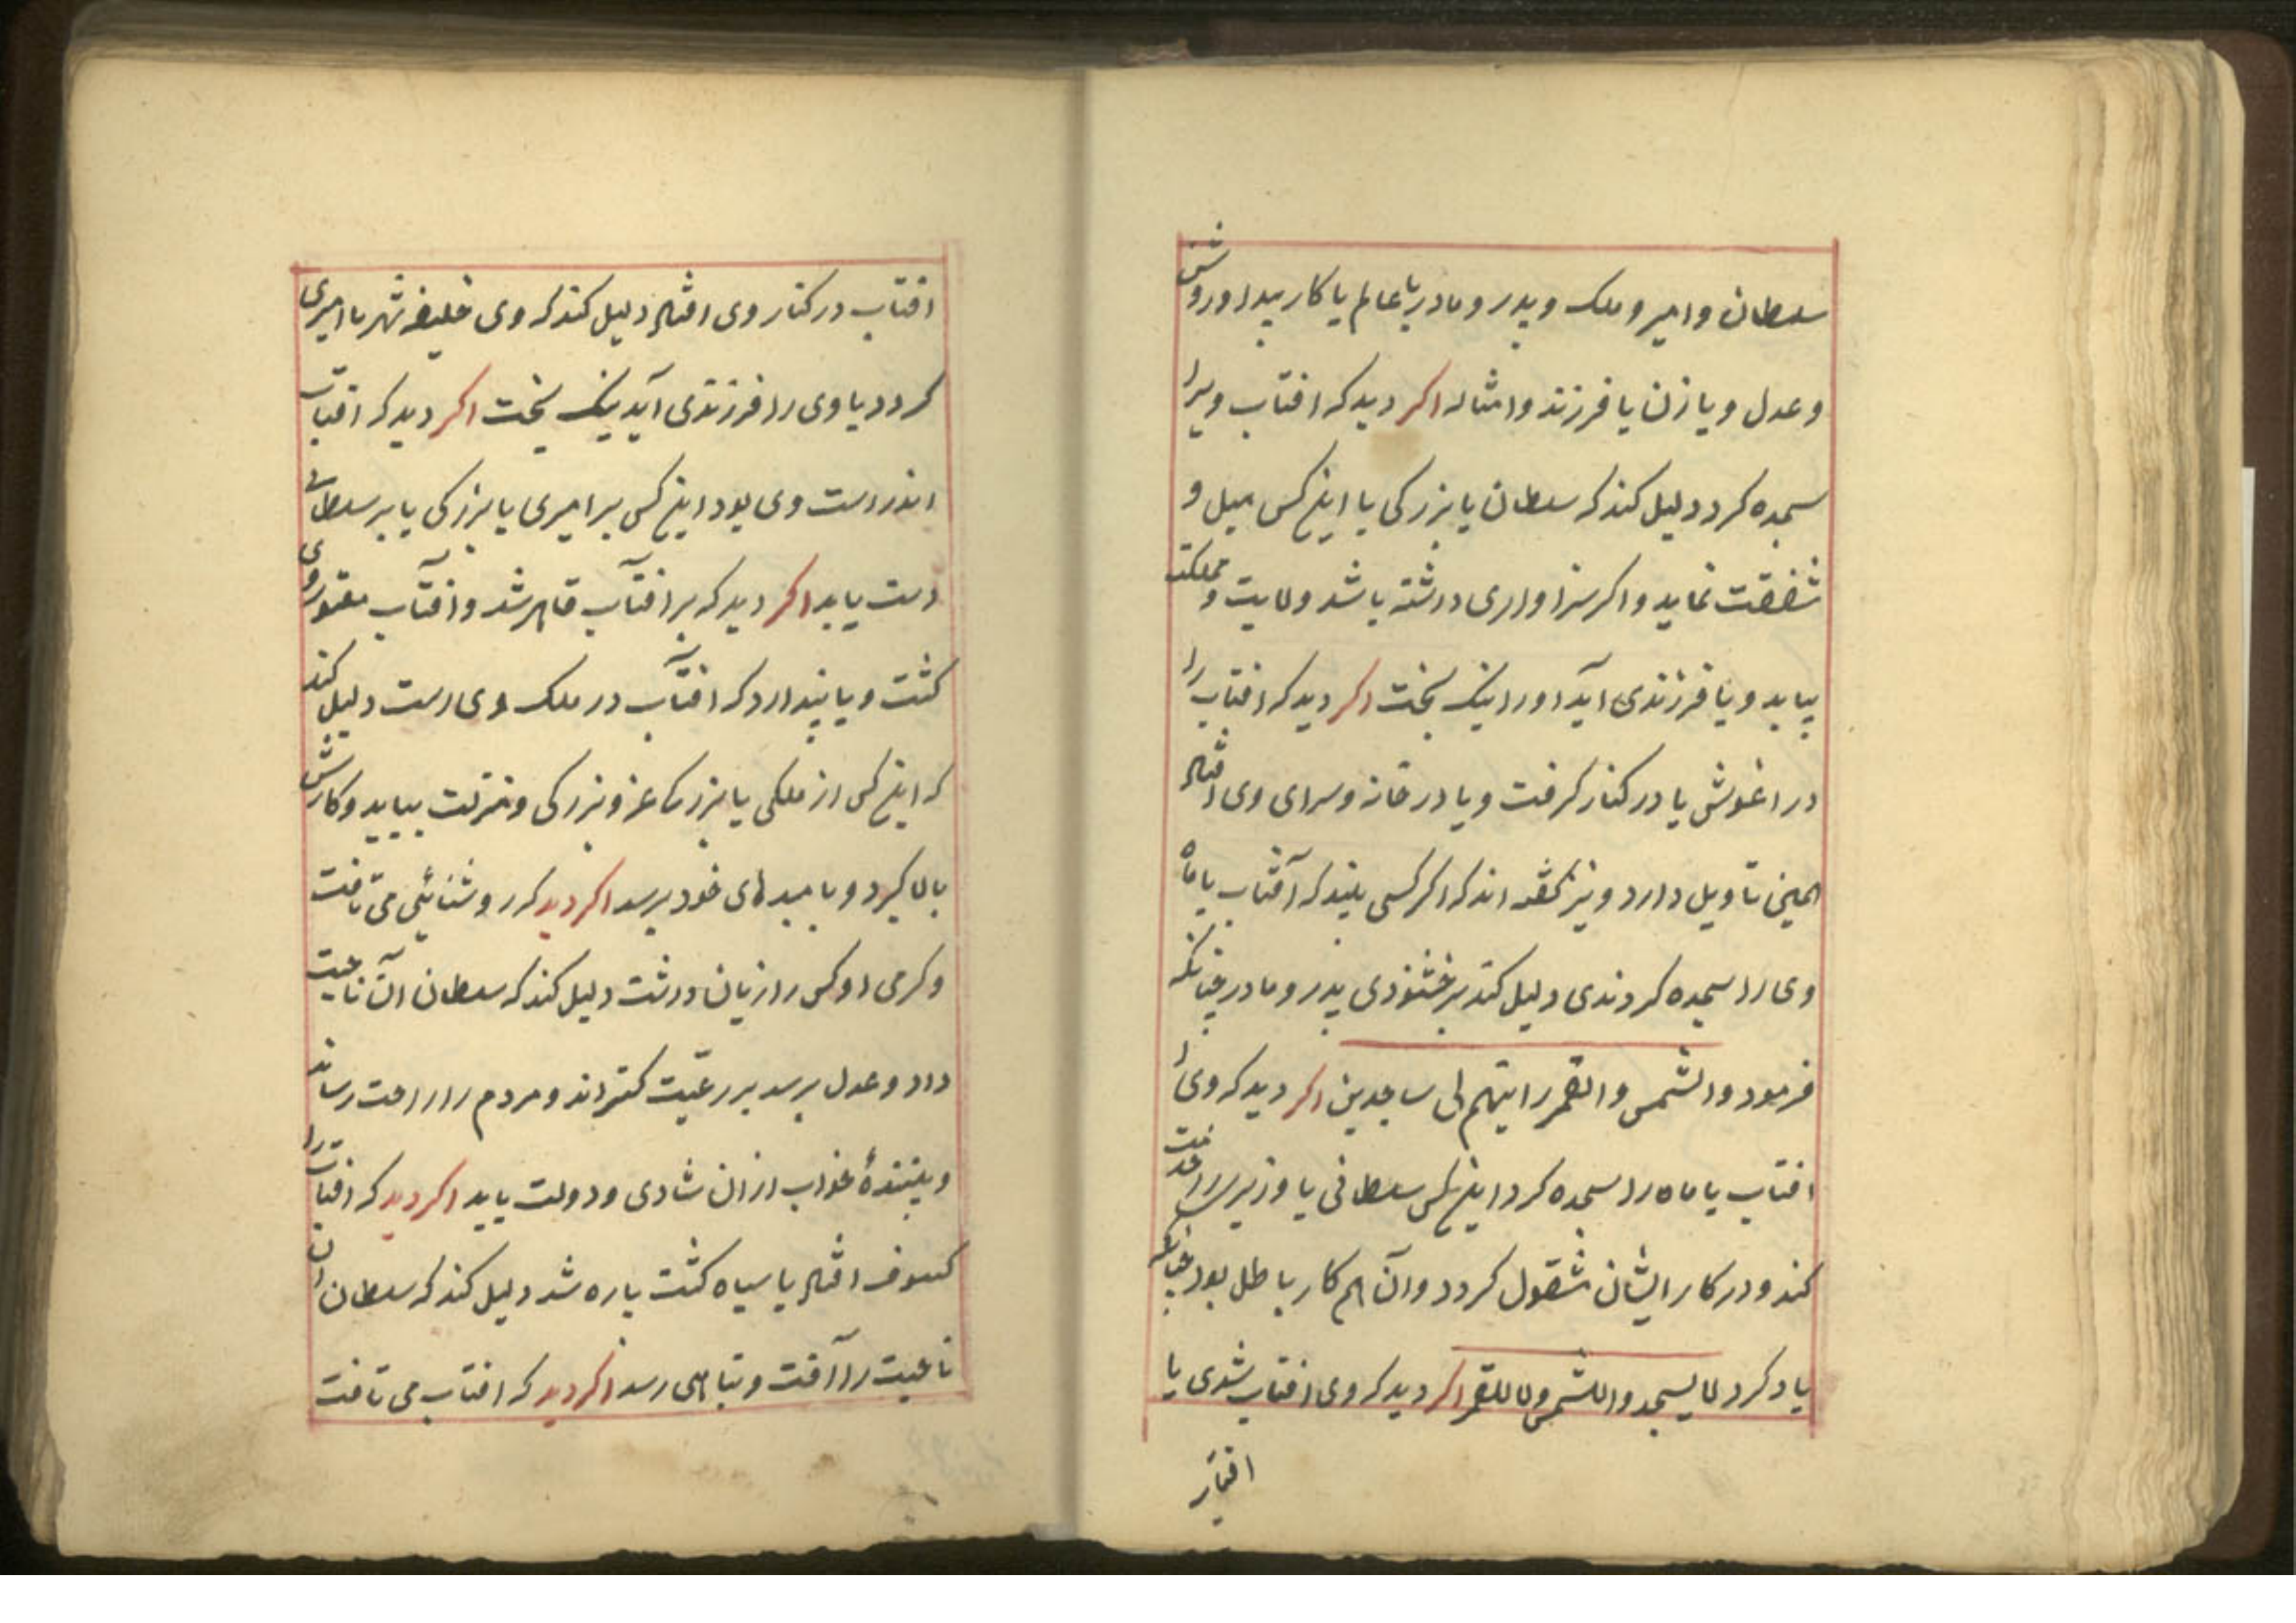 سلطان و امیر و ملک و پدر و مادر یا عالم یا کار پیدا و روشن
و عدل و یا زن یا فرزند و امثاله اکر دید که افتاب ویرا
سجده کرد دلیل کند که سلطان یا بزرکی با اینکس میل و
شفقت نماید و اکر سزاواری داشته باشد ولایت و مملکت
بیابد و یا فرزندی آید او را نیک بخت اکر دید که افتاب را
در اغوش یا در کنار کرفت و یا در خانه و سرای وی افتاد
همین تاویل دارد و نیز کفته اند که اکر کسی بیند که آفتاب یا ماه
وی را سجده کردندی دلیل کند بر خشنودی پدر و مادر چنانکه
فرمود والشمس والقمر رایتهم لی ساجدین اکر دید که وی
افتاب یا ماه را سجده کرد اینکس سلطانی یا وزیری را خدمت
کند و در کار ایشان مشغول کردد و آن هم کار باطل بود چنانکه
یاد کرد لا یسجدوا للشمس ولا للقمر اکر دید که وی افتاب شدی یا
افتاب
افتاب در کنار وی افتاد دلیل کند که وی خلیفه شهر یا امیری
کردد یا وی را فرزندی آید نیک بخت اکر دید که افتاب
اندر دست وی بود اینکس بر امیری یا بزرکی یا بر سلطانی
دست یابد اکر دید که بر افتاب قاهر شد و افتاب مقهور وی
کشت و یا پندارد که افتاب در ملک وی است دلیل کند
که اینکس از ملکی یا بزرکی عز و بزرکی و منزلت بیابد و کارش
بالا کیرد و بامیدهای خود برسد اکر دید که روشنائی می تافت
و کرمی او کس را زیان داشت دلیل کند که سلطان آن ناحیت
داد و عدل برسد بر رعیت کستراند و مردم را راحت رساند
و بینندهٔ خواب از ان شادی و دولت یابد اکر دید که افتاب را
کسوف افتاد یا سیاه کشت پاره شد دلیل کند که سلطان ان
ناحیت را آفت و تباهی رسد اکر دید که افتاب می تافت